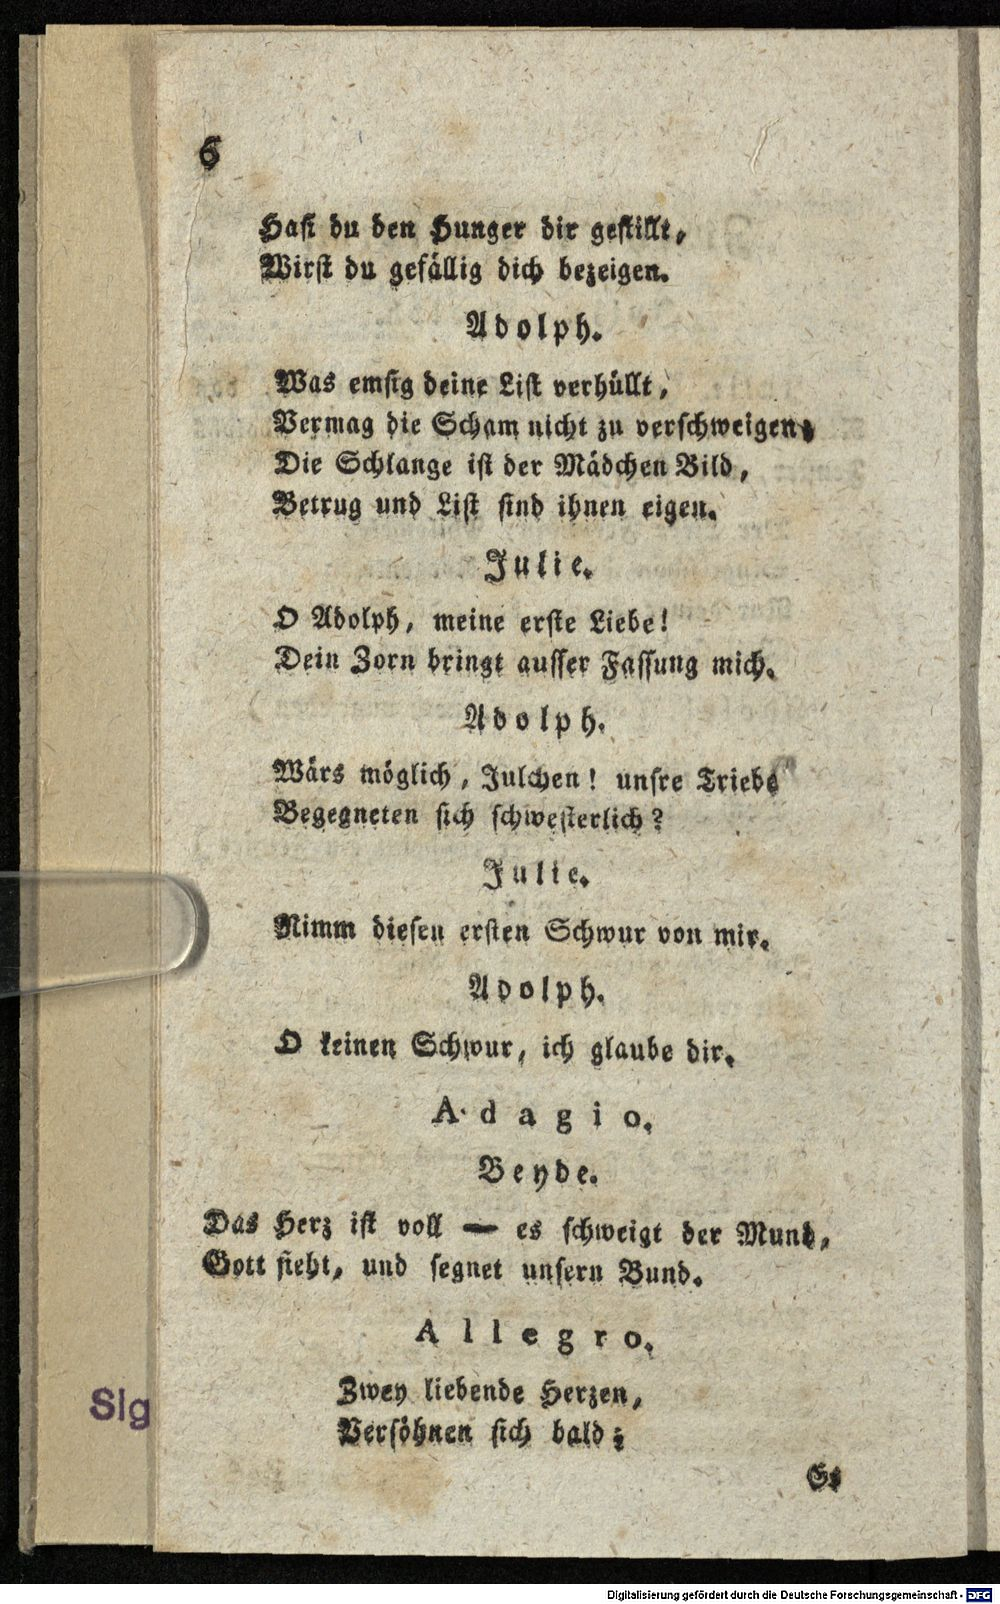 6
Hast du den Hunger dir gestillt,
Wirst du gefällig dich bezeigen.
Adolph.
Was emsig deine List verhüllt,
Vermag die Scham nicht zu verschweigen;
Die Schlange ist der Mädchen Bild,
Betrug und List sind ihnen eigen.
Julie.
O Adolph, meine erste Liebe!
Dein Zorn bringt ausser Fassung mich.
Adolph.
Wärs möglich, Julchen! unsre Triebe
Begegneten sich schwesterlich?
Julie.
Nimm diesen ersten Schwur von mir.
Adolph.
O keinen Schwur, ich glaube dir.
Adagio.
Beyde.
Das Herz ist voll — es schweigt der Mund,
Gott sieht, und segnet unsern Bund.
Allegro.
Zwey liebende Herzen,
Versöhnen sich bald;
Es
Slg
Digitalisierung gefördert durch die Deutsche Forschungsgemeinschaft - DFG